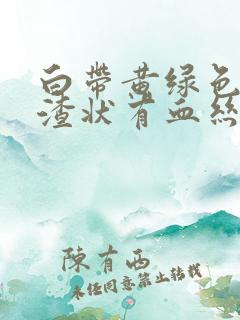 白帶黃绿色
渣状有血絲
陳有西
未经同意禁止转载